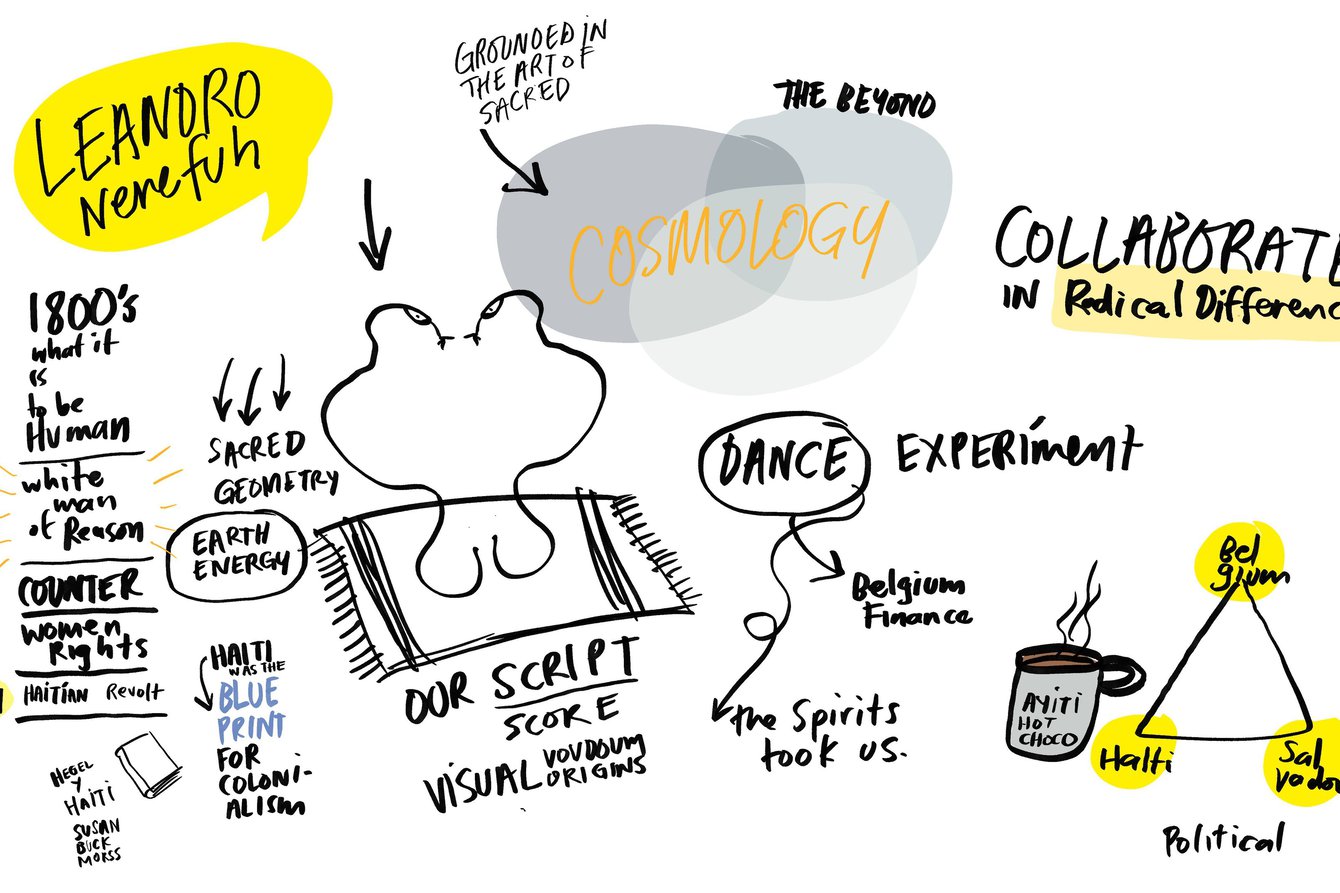 LEANDRO
Nerefuh
GROUNDED IN
THE ART OF
SACRED
THE BEYOND
COSMOLOGY
COLLABORATE
IN Radical Differenc
1800's
what it
is
to be
Human
white
man
of Reason
COUNTER
women
Rights
HAITIAN Revolt
HEGEL
Y
HAITI
SUSAN
BUCK
MORSS
SACRED
GEOMETRY
EARTH
ENERGY
HAITI
WAS THE
BLUE
PRINT
FOR
COLONI-
ALISM
OUR SCRIPT
SCORE
VISUAL VOVDOUM
ORIGINS
DANCE EXPERIMENT
Belgium
Finance
the Spirits
took us.
AYITI
HOT
CHOCO
Bel
gium
Haiti
Sal
vador
Political